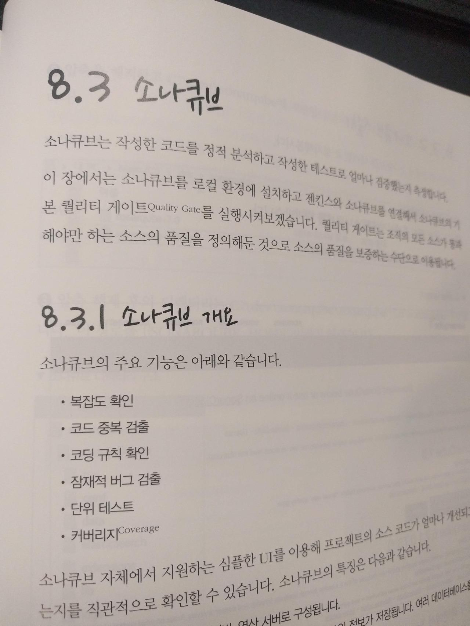 8.3 소나큐브
소나큐브는 작성한 코드를 정적 분석하고 작성한 테스트로 얼마나 검증했는지 측정합니다.
이 장에서는 소나큐브를 로컬 환경에 설치하고 젠킨스와 소나큐브를 연결해서 소나큐브의 기
본 퀄리티 게이트Quality Gate를 실행시켜보겠습니다. 퀄리티 게이트는 조직의 모든 소스가 통과
해야만 하는 소스의 품질을 정의해둔 것으로 소스의 품질을 보증하는 수단으로 이용됩니다.
8.3.1 소나큐브 개요
소나큐브의 주요 기능은 아래와 같습니다.
• 복잡도 확인
• 코드 중복 검출
• 코딩 규칙 확인
• 잠재적 버그 검출
• 단위 테스트
• 커버리지Coverage
소나큐브 자체에서 지원하는 심플한 UI를 이용해 프로젝트의 소스 코드가 얼마나 개선되고
는지를 직관적으로 확인할 수 있습니다. 소나큐브의 특징은 다음과 같습니다.
연산 서버로 구성됩니다.
정보가 저장됩니다. 여러 데이터베이스를